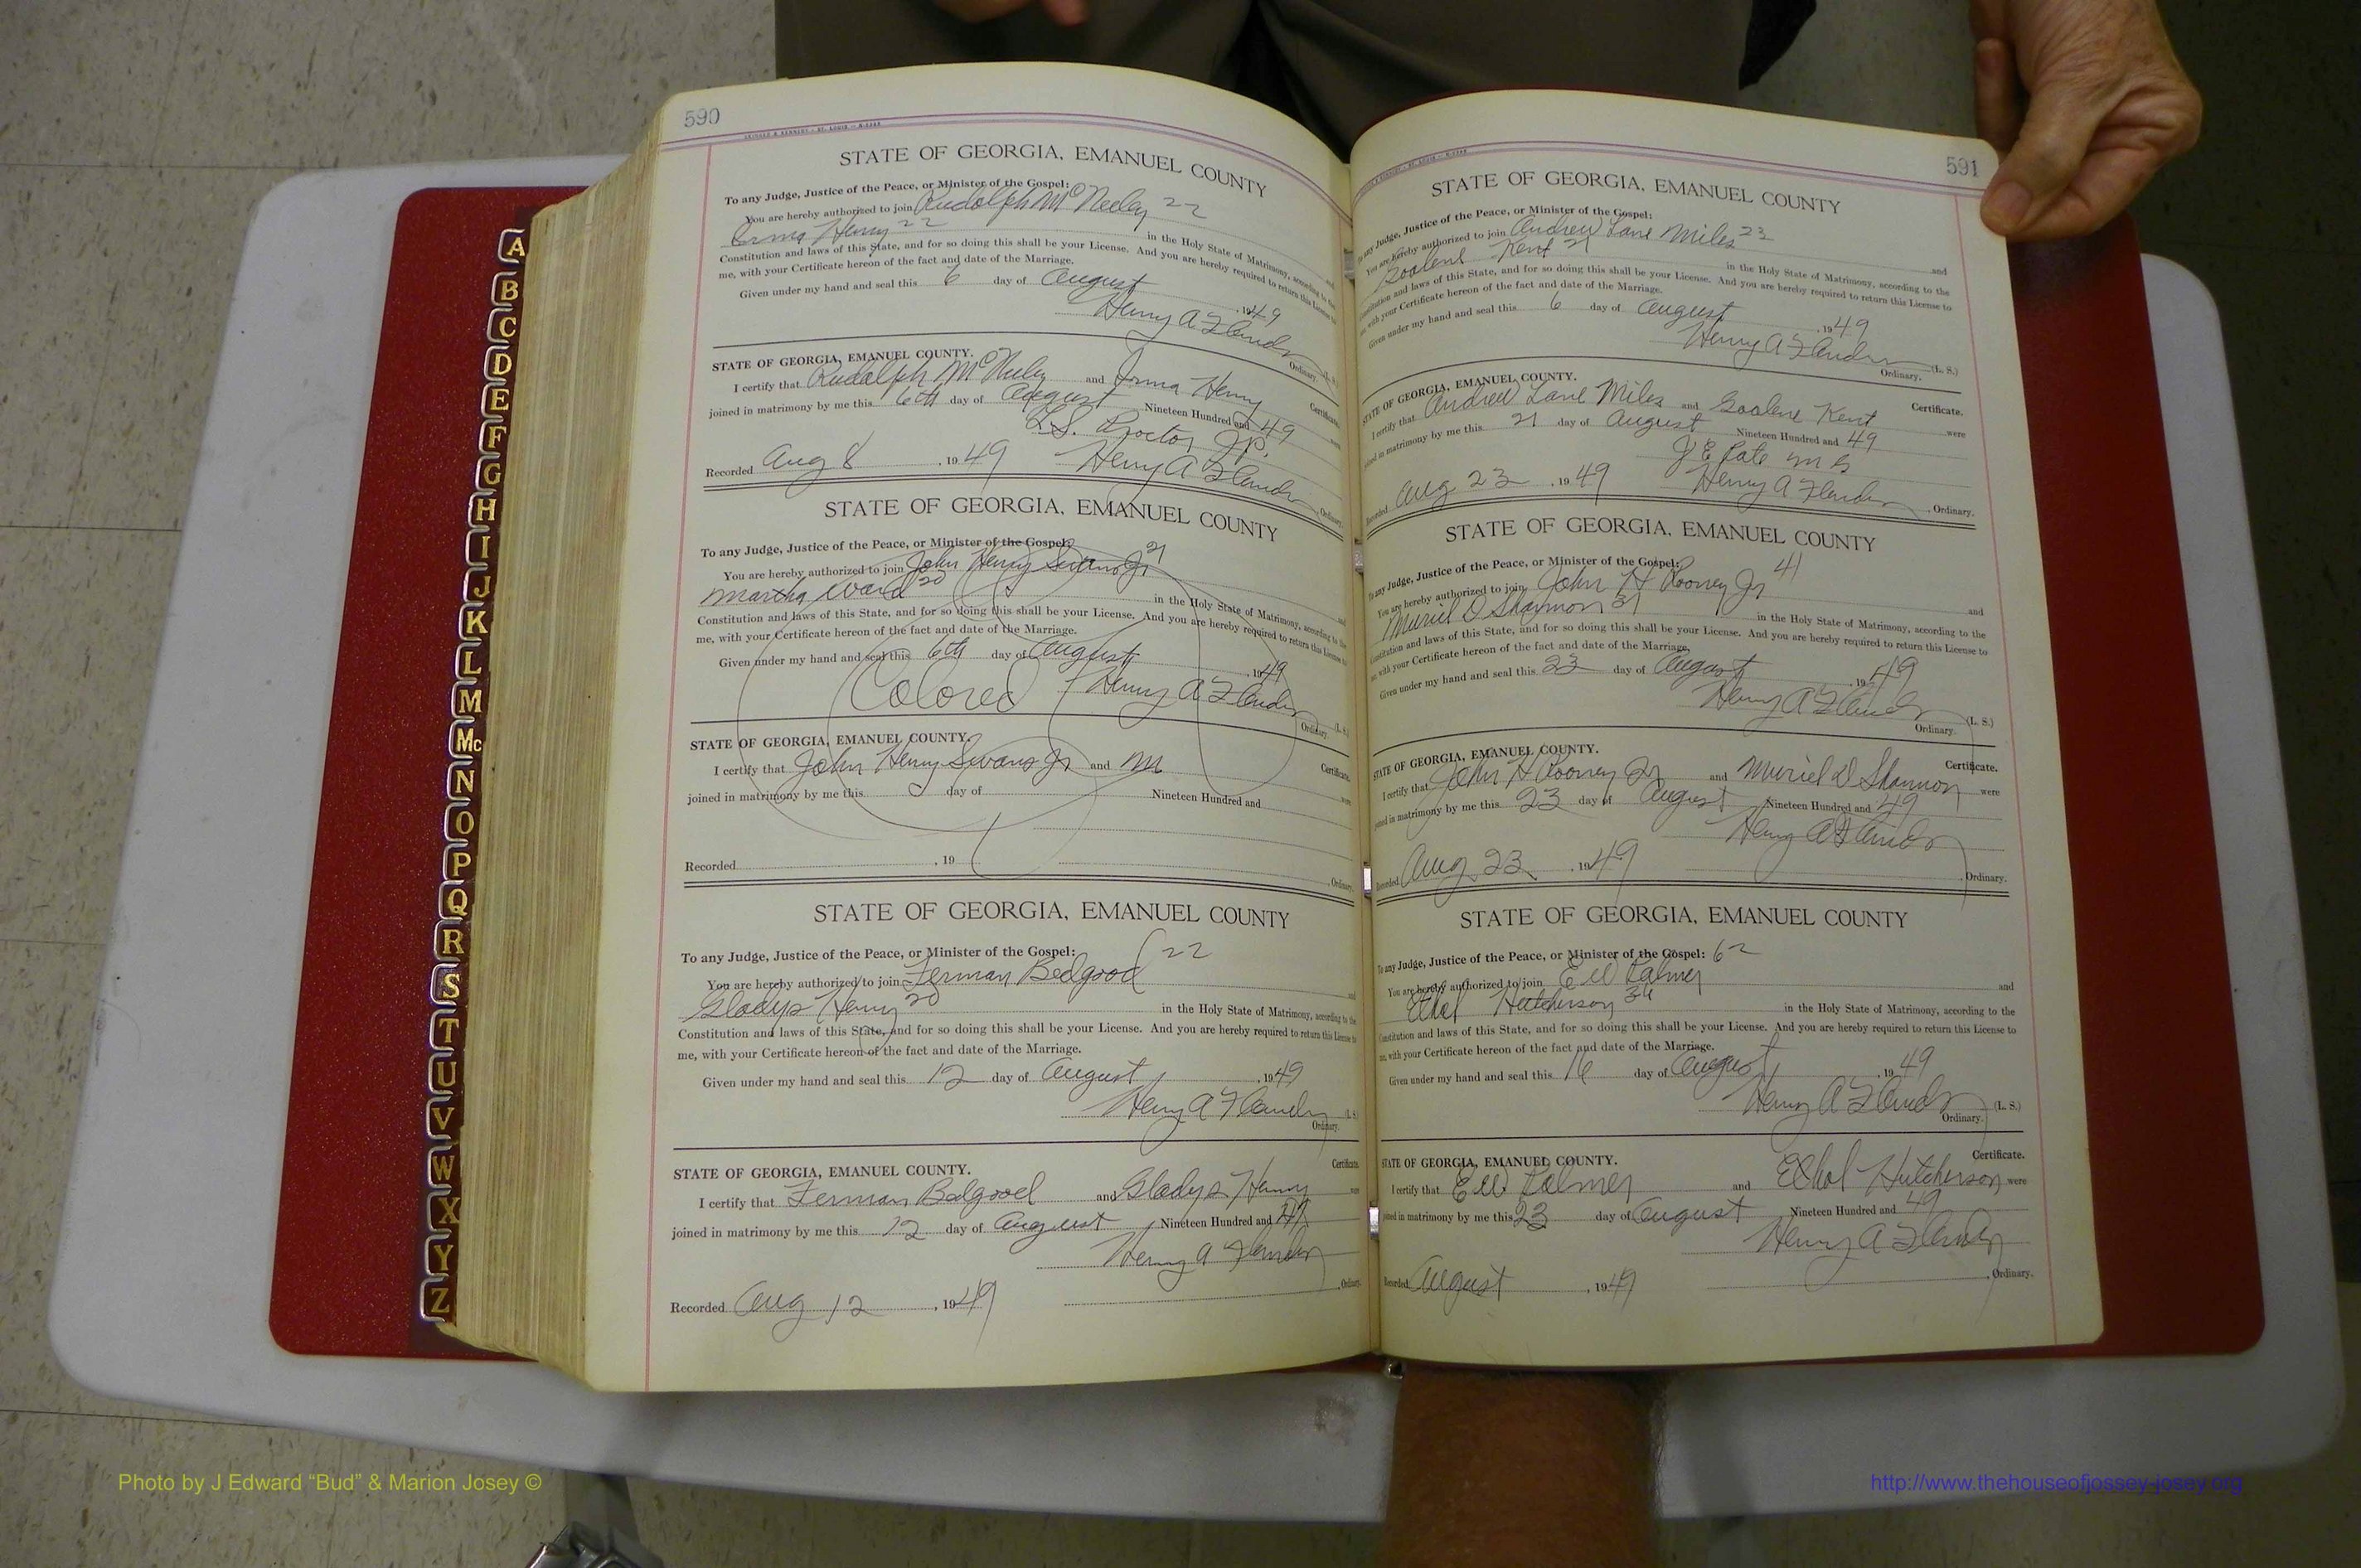 590
STATE OF GEORGIA, EMANUEL COUNTY
To any Judge, Justice of the Peace, or Minister of the Gospel:
You are hereby authorized to join Rudolph McNeeley 22
and
Irma Henry 22 in the Holy State of Matrimony, according to the
Constitution and laws of this State, and for so doing this shall be your License. And you are hereby required to return this License to
me, with your Certificate hereon of the fact and date of the Marriage.
Given under my hand and seal this 6 day of August, 1949
Henry A Flanders (L. S.)
Ordinary.
STATE OF GEORGIA, EMANUEL COUNTY. Certificate.
I certify that Rudolph McNeeley and Irma Henry were
joined in matrimony by me this 6th day of August Nineteen Hundred and 49
L.S. Proctor J.P.
Recorded Aug 8, 1949 Henry A Flanders, Ordinary.
STATE OF GEORGIA, EMANUEL COUNTY
To any Judge, Justice of the Peace, or Minister of the Gospel:
You are hereby authorized to join John Henry Swans Jr 21
and
Martha Ward 20 in the Holy State of Matrimony, according to the
Constitution and laws of this State, and for so doing this shall be your License. And you are hereby required to return this License to
me, with your Certificate hereon of the fact and date of the Marriage.
Given under my hand and seal this 6th day of August, 1949
Colored Henry A Flanders (L. S.)
Ordinary.
STATE OF GEORGIA, EMANUEL COUNTY. Certificate.
I certify that John Henry Swans Jr and M were
joined in matrimony by me this day of Nineteen Hundred and
Recorded , 19 , Ordinary.
STATE OF GEORGIA, EMANUEL COUNTY
To any Judge, Justice of the Peace, or Minister of the Gospel:
You are hereby authorized to join Ferman Bedgood 22 and
Gladys Henry 20 in the Holy State of Matrimony, according to the
Constitution and laws of this State, and for so doing this shall be your License. And you are hereby required to return this License to
me, with your Certificate hereon of the fact and date of the Marriage.
Given under my hand and seal this 12 day of August, 1949
Henry A Flanders (L. S.)
Ordinary.
STATE OF GEORGIA, EMANUEL COUNTY. Certificate.
I certify that Ferman Bedgood and Gladys Henry were
joined in matrimony by me this 12 day of August Nineteen Hundred and 49
Henry A Flanders
Recorded Aug 12, 1949 , Ordinary.
591
STATE OF GEORGIA, EMANUEL COUNTY
To any Judge, Justice of the Peace, or Minister of the Gospel:
You are hereby authorized to join Andrew Lane Miles 23
and
Kent 21 in the Holy State of Matrimony, according to the
Constitution and laws of this State, and for so doing this shall be your License. And you are hereby required to return this License to
me, with your Certificate hereon of the fact and date of the Marriage.
Given under my hand and seal this 6 day of August, 1949
Henry A Flanders (L. S.)
Ordinary.
STATE OF GEORGIA, EMANUEL COUNTY. Certificate.
I certify that Andrew Lane Miles and Kent were
joined in matrimony by me this 21 day of August Nineteen Hundred and 49
J E Pate M G
Recorded Aug 23, 1949 Henry A Flanders, Ordinary.
STATE OF GEORGIA, EMANUEL COUNTY
To any Judge, Justice of the Peace, or Minister of the Gospel:
You are hereby authorized to join John H Rooney Jr 41
and
Muriel D Shannon 31 in the Holy State of Matrimony, according to the
Constitution and laws of this State, and for so doing this shall be your License. And you are hereby required to return this License to
me, with your Certificate hereon of the fact and date of the Marriage.
Given under my hand and seal this 23 day of August, 1949
Henry A Flanders (L. S.)
Ordinary.
STATE OF GEORGIA, EMANUEL COUNTY. Certificate.
I certify that John H Rooney Jr and Muriel D Shannon were
joined in matrimony by me this 23 day of August Nineteen Hundred and 49
Henry A Flanders
Recorded Aug 23, 1949 , Ordinary.
STATE OF GEORGIA, EMANUEL COUNTY
To any Judge, Justice of the Peace, or Minister of the Gospel: 62
You are hereby authorized to join E W Palmer and
Ethel Hutcherson 36 in the Holy State of Matrimony, according to the
Constitution and laws of this State, and for so doing this shall be your License. And you are hereby required to return this License to
me, with your Certificate hereon of the fact and date of the Marriage.
Given under my hand and seal this 16 day of August, 1949
Henry A Flanders (L. S.)
Ordinary.
STATE OF GEORGIA, EMANUEL COUNTY. Certificate.
I certify that E W Palmer and Ethel Hutcherson were
joined in matrimony by me this 23 day of August Nineteen Hundred and 49
Henry A Flanders
Recorded August, 1949 , Ordinary.
A
B
C
D
E
F
G
H
I
J
K
L
M
Mc
N
O
P
Q
R
S
T
U
V
W
X
Y
Z
Photo by J Edward “Bud” & Marion Josey ©
http://www.thehouseofjossey-josey.org